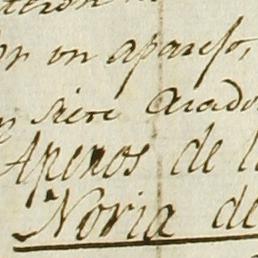 or un aparejo,
siete arado
Aperos de l
Noria de